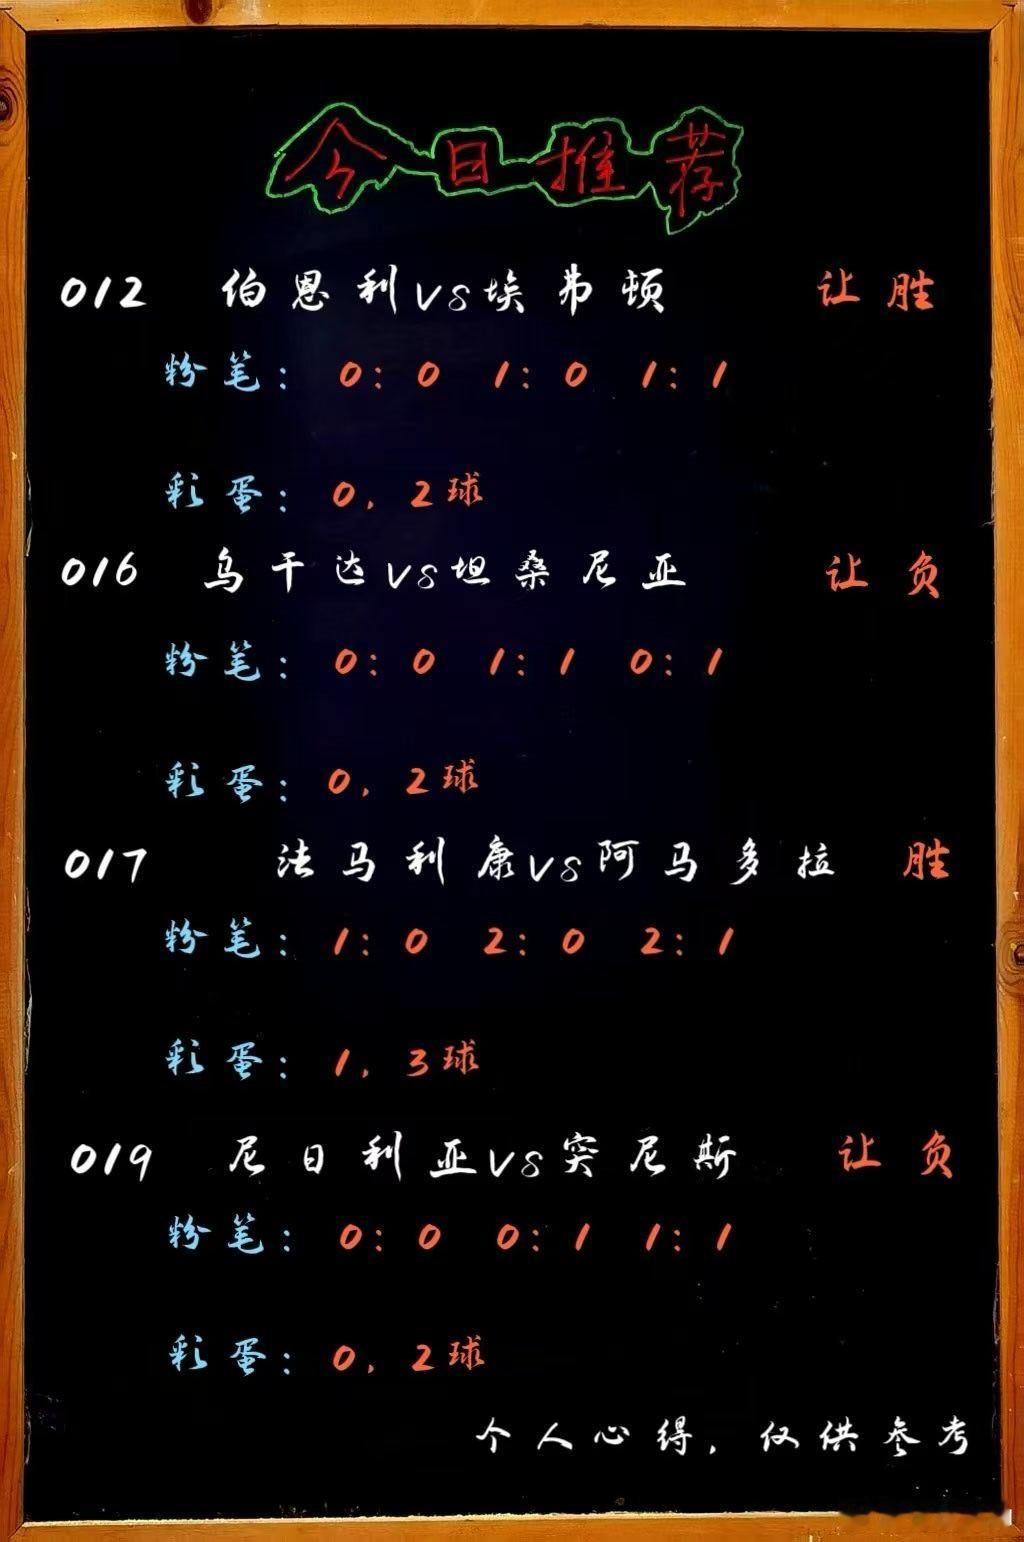 今日推荐
012 伯恩利vs埃弗顿 让胜
粉笔：0:0 1:0 1:1
彩蛋：0，2球
016 乌干达vs坦桑尼亚 让负
粉笔：0:0 1:1 0:1
彩蛋：0，2球
017 法马利康vs阿马多拉 胜
粉笔：1:0 2:0 2:1
彩蛋：1，3球
019 尼日利亚vs突尼斯 让负
粉笔：0:0 0:1 1:1
彩蛋：0，2球
个人心得，仅供参考